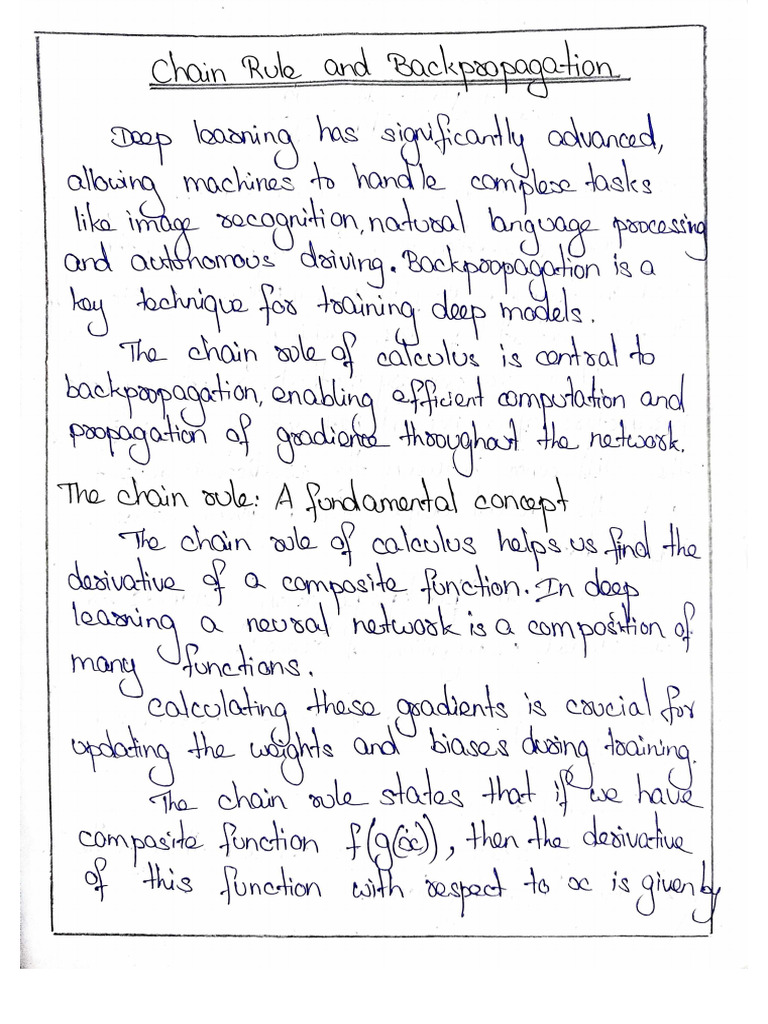 Chain Rule and Backpropagation
Deep learning has significantly advanced,
allowing machines to handle complex tasks
like image recognition, natural language processing
and autonomous driving. Backpropagation is a
key technique for training deep models.
The chain rule of calculus is central to
backpropagation, enabling efficient computation and
propagation of gradience throughout the network.
The chain rule: A fundamental concept
The chain rule of calculus helps us find the
derivative of a composite function. In deep
learning a neural network is a composition of
many functions.
Calculating these gradients is crucial for
updating the weights and biases during training.
The chain rule states that if we have
composite function f(g(x)), then the derivative
of this function with respect to x is given by